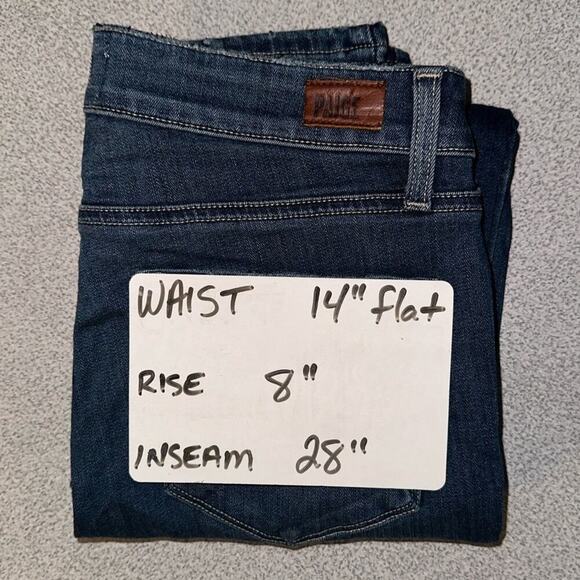 PAIGE
WAIST 14" flat
RISE 8"
INSEAM 28"